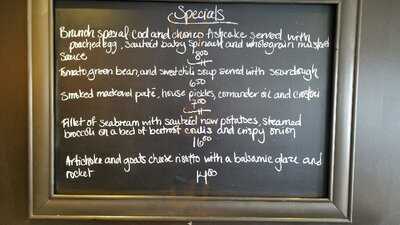 Specials
Brunch special Cod and chorizo fishcake served with
poached egg, sautéed baby spinach and wholegrain mustard
sauce
800
Tomato, green bean, and sweet chilli soup served with sourdough
650
Smoked mackerel pate, house pickles, corriander oil and crostini
700
Fillet of seabream with sautéed new potatoes, steamed
broccoli on a bed of beetroot coulis and crispy onion
16.00
Artichoke and goats cheese risotto with a balsamic glaze and
rocket
14.00